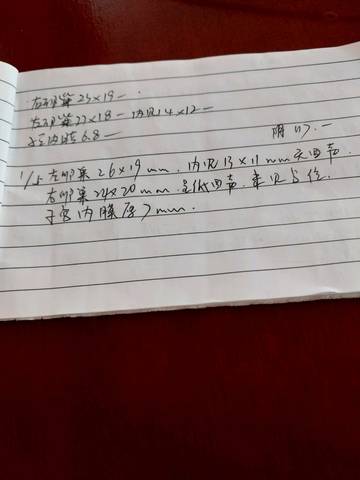 右卵巢 23×19一
左卵巢 22×18一 内见14×12一
子宫内膜6.8一
1/5 左卵巢26×19mm. 内见13×11mm无回声
右卵巢24×20mm. 呈低回声. 未见占位.
子宫内膜厚7mm.